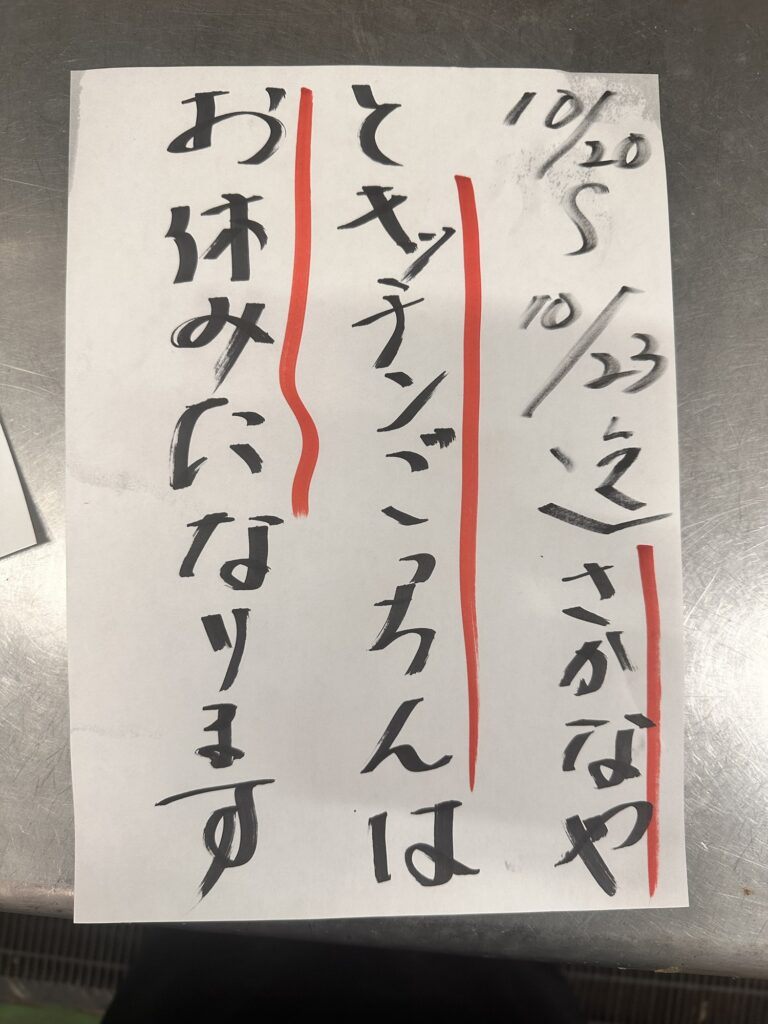 10/20〜10/23迄さかなや
とキッチンごっちんは
お休みになります